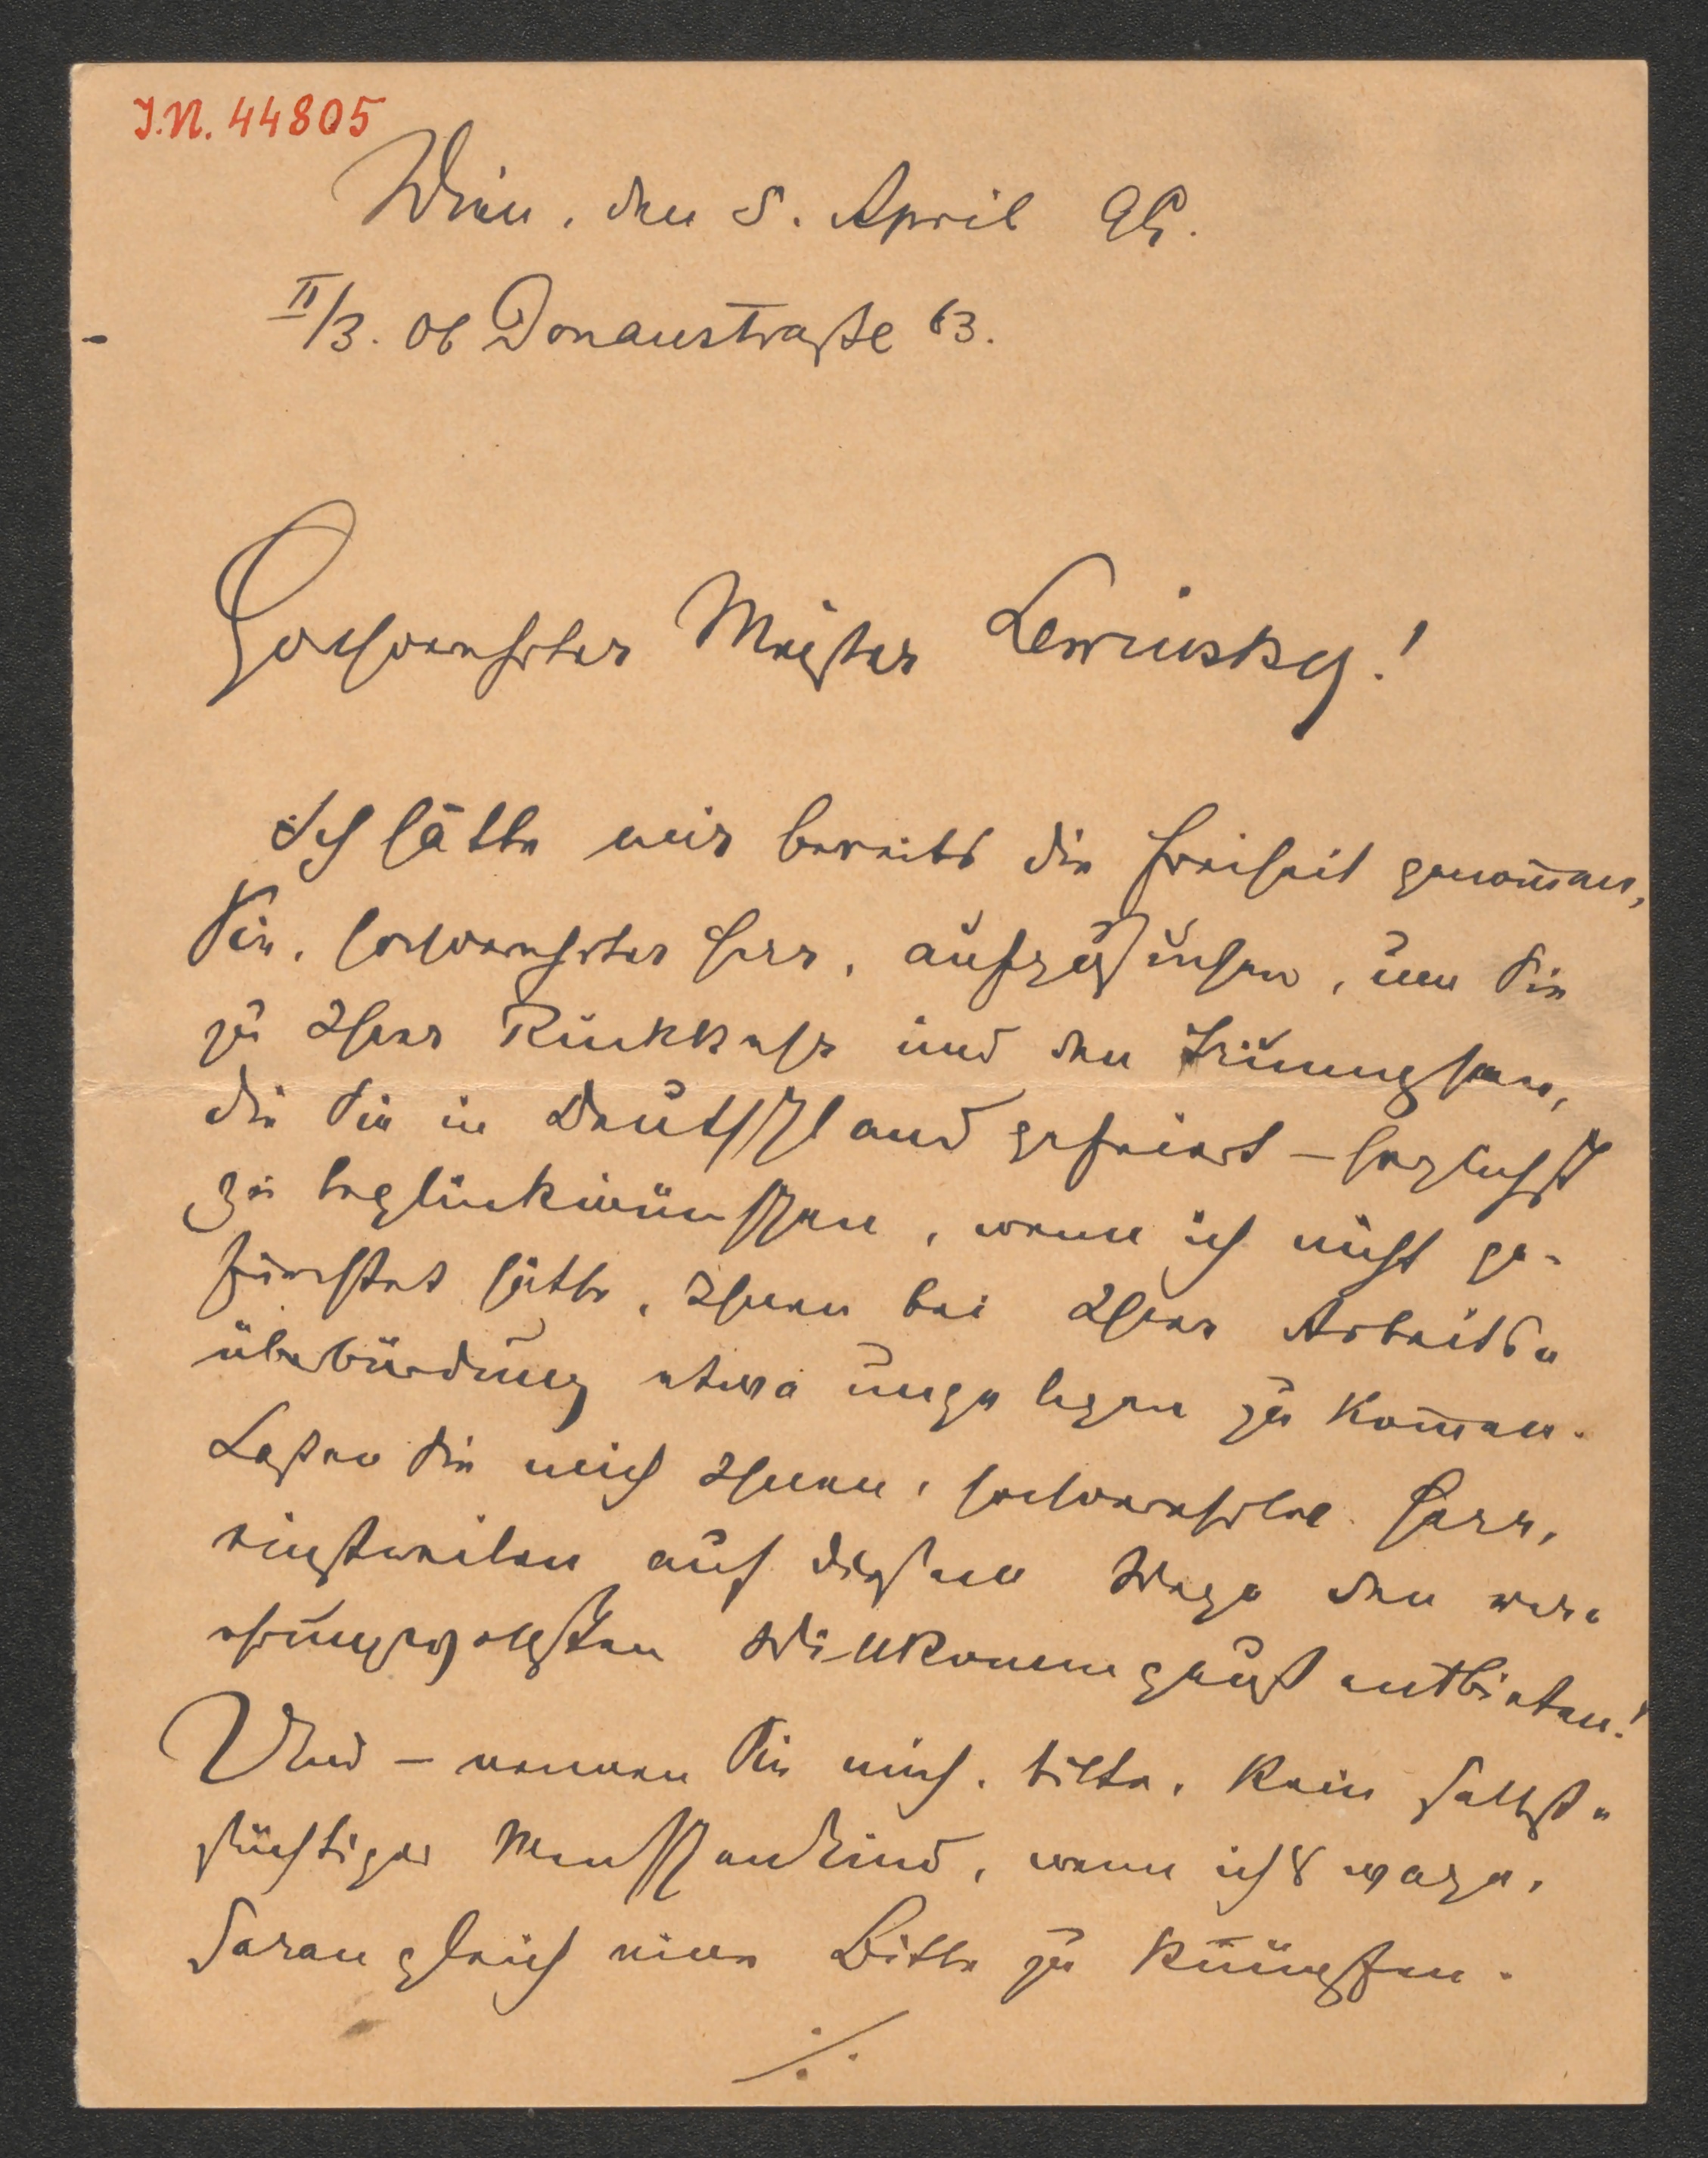 J.N. 44805
Wien, den 5. April 95.
II/3. Ob Donaustraße 63.
Hochverehrter Meister Lewinsky!
Ich hätte mir bereits die Freiheit genom̅en,
Sie, hochverehrter Herr, aufzusuchen, um Sie
zu Ihrer Rückkehr und den Triumphen,
die Sie in Deutschland gefeiert – herzlichst
zu beglückwünschen, wenn ich nicht ge-
fürchtet hätte, Ihnen bei Ihrer Arbeits-
überbürdung etwa ungelegen zu kom̅en.
Laßen Sie mich Ihnen, hochverehrter Herr,
einstweilen auf diesem Wege den ver-
ehrungsvollsten Willkommgruß entbieten!
Und – nennen Sie mich, bitte, kein selbst-
süchtiges Menschenkind, wenn ich's wage,
daran gleich eine Bitte zu knüpfen.
./.